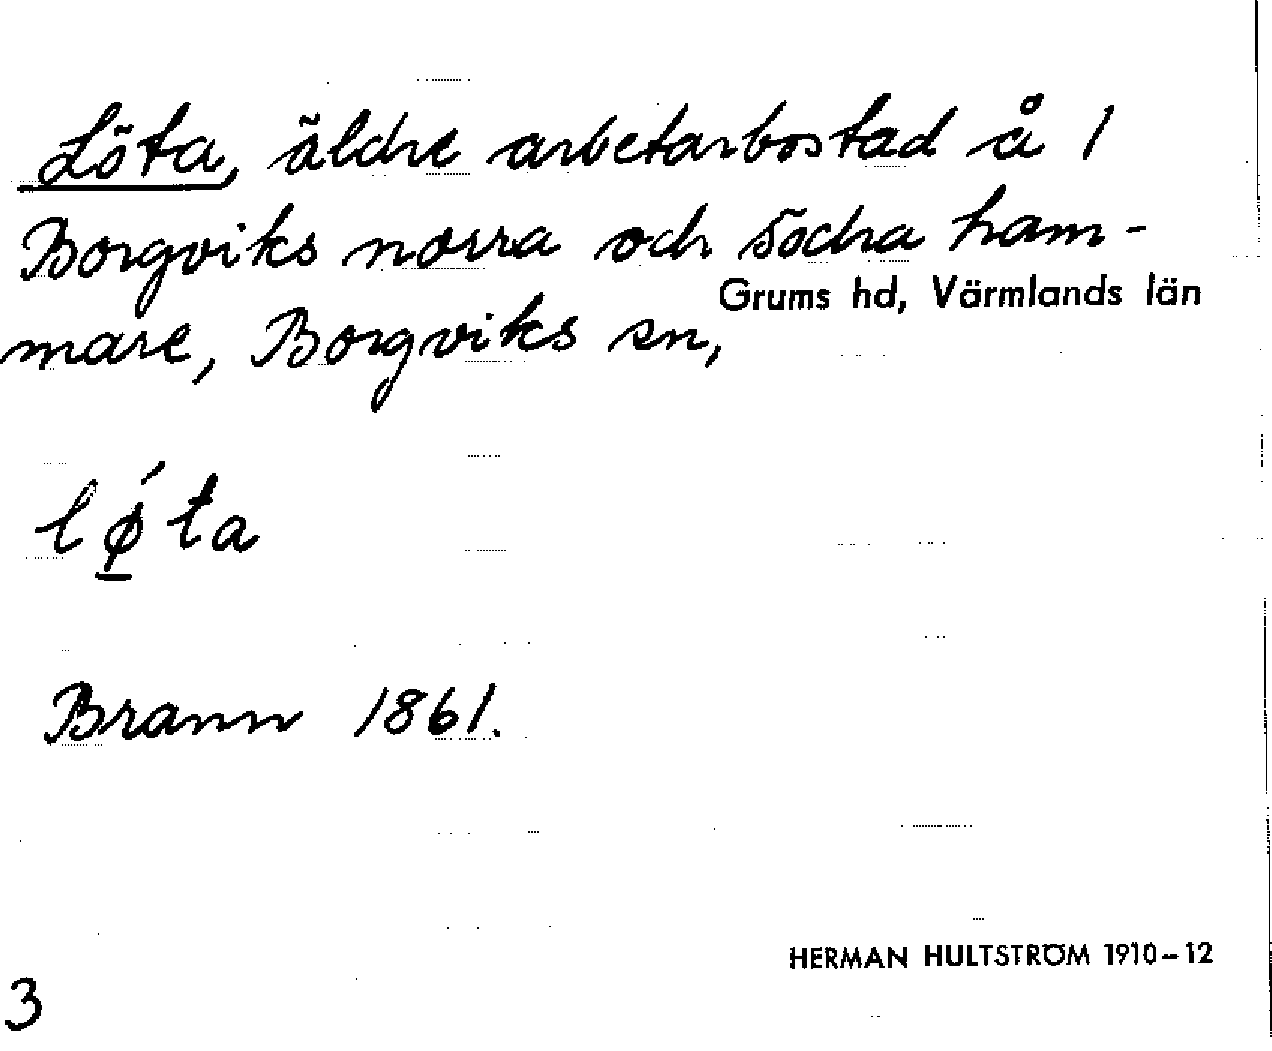 Löta, äldre arbetarbostad å 1
Borgviks norra och södra ham-
mare, Borgviks sn, Grums hd, Värmlands län
lǿ̱ta
Brann 1861.
HERMAN HULTSTRÖM 1910-12
3